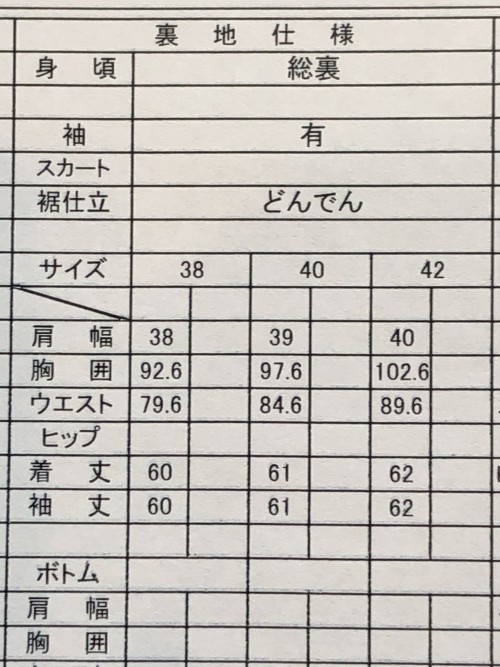 裏地仕様
身頃 総裏
袖 有
スカート
裾仕立 どんでん
サイズ 38 40 42
肩幅 38 39 40
胸囲 92.6 97.6 102.6
ウエスト 79.6 84.6 89.6
ヒップ
着丈 60 61 62
袖丈 60 61 62
ボトム
肩幅
胸囲